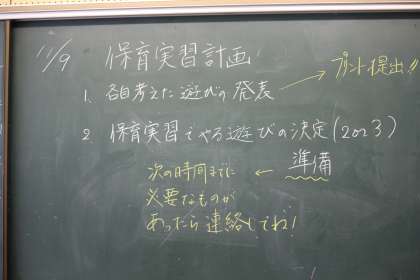 11/9 保育実習計画
1. 各自考えた遊びの発表 → プリント提出!!
2. 保育実習でやる遊びの決定(2つ3)
次の時間までに ← 準備
必要なものが
あったら連絡してね!